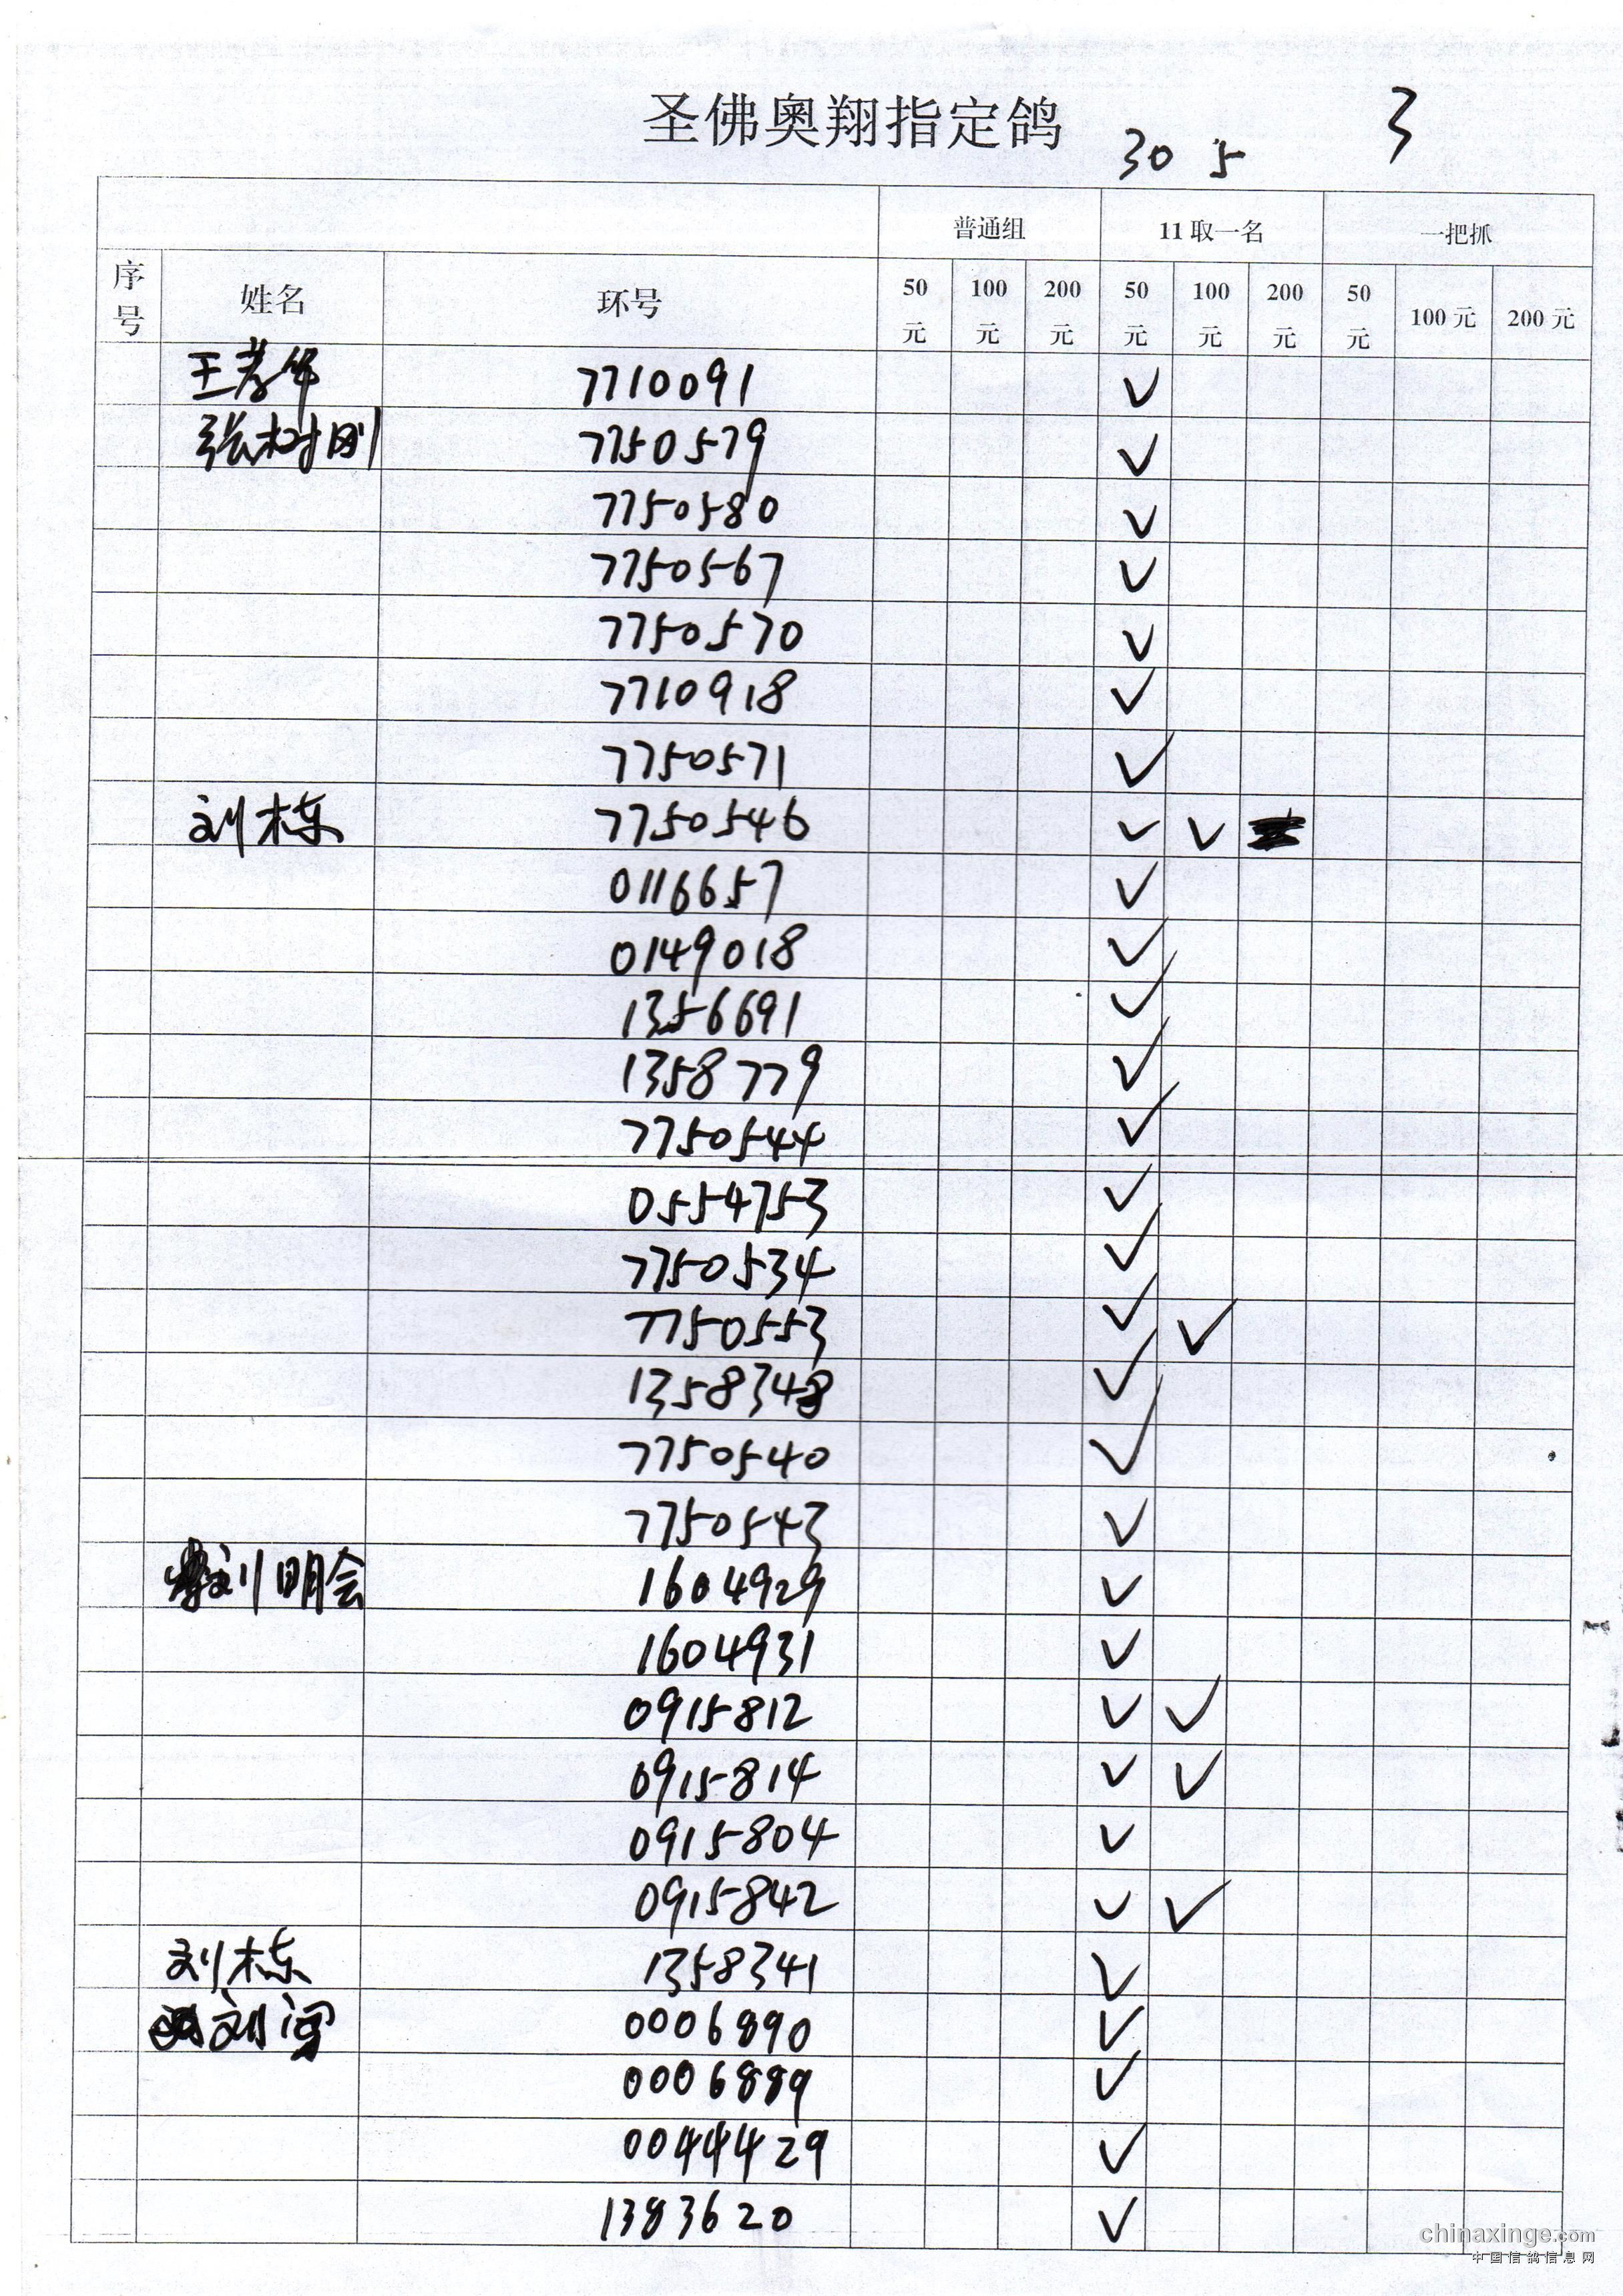 圣佛奥翔指定鸽
30 5 3
普通组 11取一名 一把抓
序号 姓名 环号 50元 100元 200元 50元 100元 200元 50元 100元 200元
王孝华 7710091 ✓
张树刚 7750579 ✓
7750580 ✓
7750567 ✓
7750570 ✓
7710918 ✓
7750571 ✓
刘栋 7750546 ✓ ✓
0116657 ✓
0149018 ✓
1356691 ✓
1358779 ✓
7750544 ✓
0554753 ✓
7750534 ✓
7750553 ✓ ✓
1358348 ✓
7750540 ✓
7750543 ✓
刘明会 1604929 ✓
1604931 ✓
0915812 ✓ ✓
0915814 ✓ ✓
0915804 ✓
0915842 ✓ ✓
刘栋 1358341 ✓
刘 0006890 ✓
0006889 ✓
0044429 ✓
1383620 ✓
chinaxinge.com
中国信鸽信息网